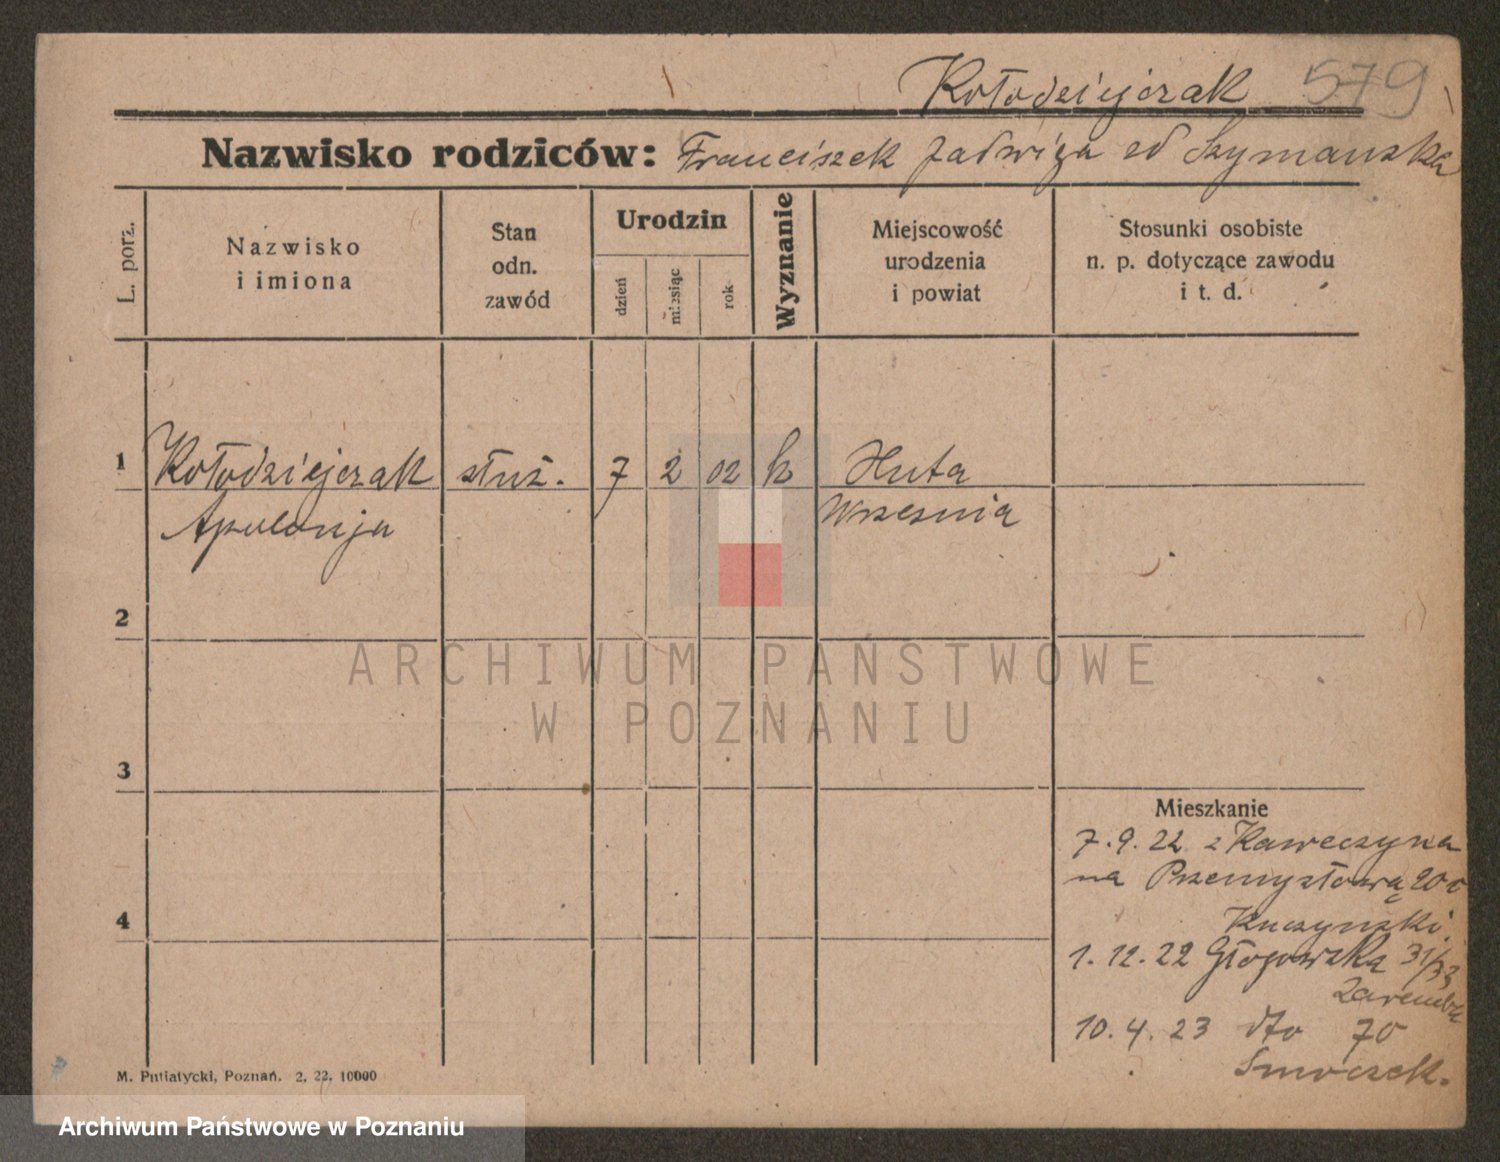 Kołodziejczak 579
Nazwisko rodziców: Franciszek Jadwiga zd Szymańska
L. porz.
Nazwisko
i imiona
Stan
odn.
zawód
Urodzin
dzień
miesiąc
rok
Wyznanie
Miejscowość
urodzenia
i powiat
Stosunki osobiste
n. p. dotyczące zawodu
i t. d.
1 Kołodziejczak służ. 7 2 02 k Huta
Apolonja Września
2
3
4
ARCHIWUM PAŃSTWOWE
W POZNANIU
Mieszkanie
7.9.22 z Kaweczyna
na Przemysłową 20
Kuczynski.
1.12.22 Głogowska 31/33
Zaremba
10.4.23 dto 70
Smoczek.
M. Putiatycki, Poznań. 2, 22. 10000
Archiwum Państwowe w Poznaniu